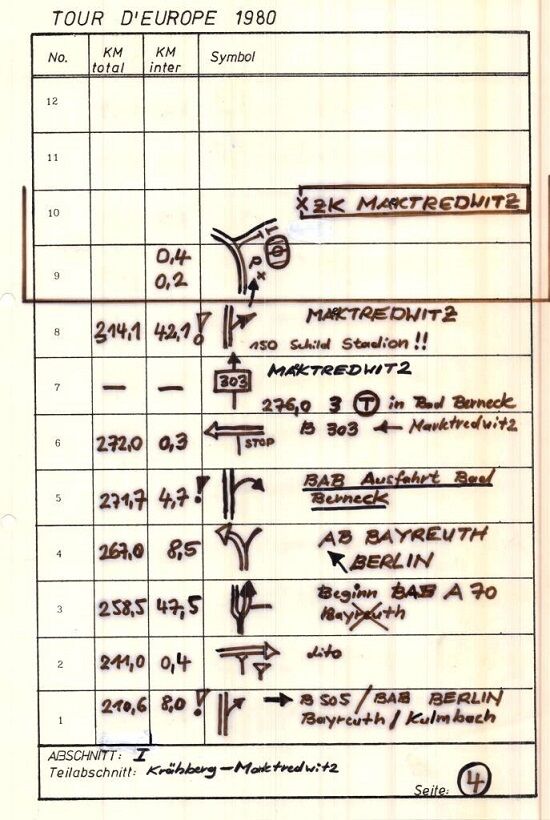 TOUR D'EUROPE 1980
No. KM total KM inter Symbol
12
11
10 x ZK MAKTREDWITZ
9 0,4 0,2 P x
8 314,1 42,1 ! MAKTREDWITZ
150 Schild Stadion !!
7 — — 303 MAKTREDWITZ
276,0 3 T in Bad Berneck
6 272,0 0,3 STOP B 303 ← Marktredwitz
5 271,7 4,7 ! BAB Ausfahrt Bad
Berneck
4 267,0 8,5 AB BAYREUTH
BERLIN
3 258,5 47,5 Beginn BAB A 70
Bayreuth
2 211,0 0,4 dito
1 210,6 8,0 ! → B 505 / BAB BERLIN
Bayreuth / Kulmbach
ABSCHNITT: I
Teilabschnitt: Krähberg – Marktredwitz
Seite: 4